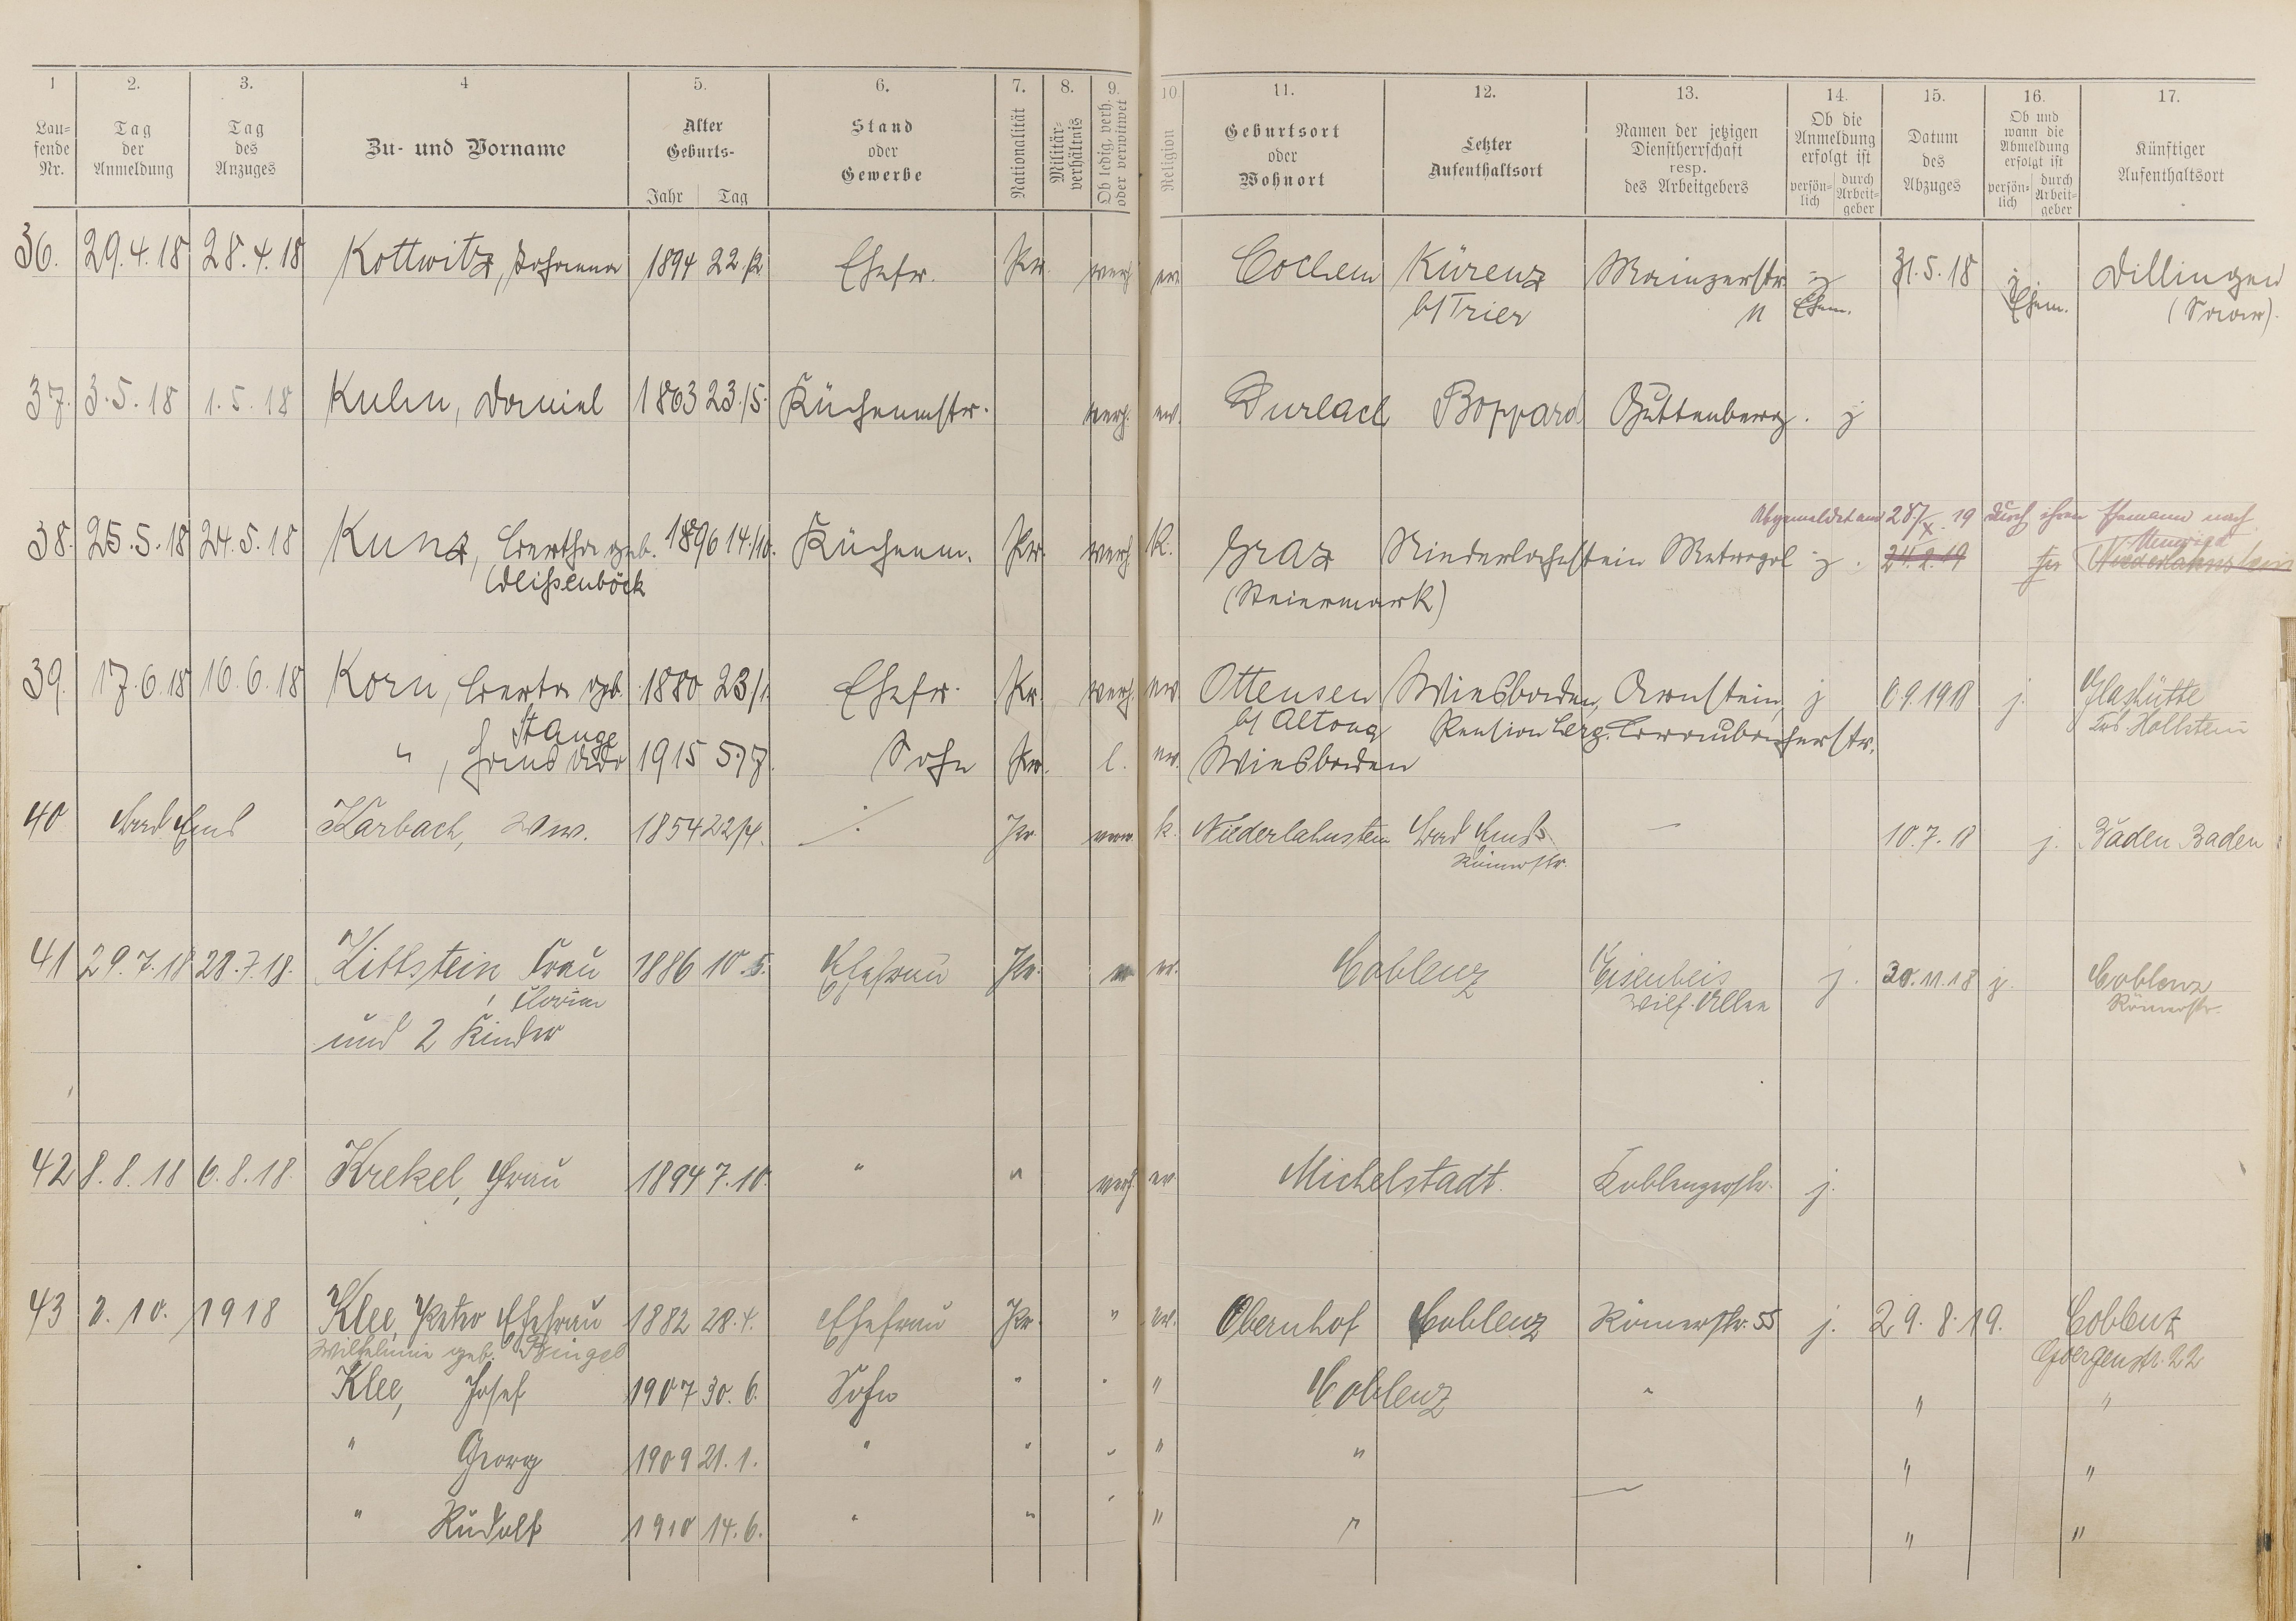 1 2. 3. 4 5. 6. 7. 8. 9. 10. 11. 12. 13. 14. 15. 16. 17.
Lau=
fende
Nr.
Tag
der
Anmeldung
Tag
des
Anzuges
Zu- und Vorname
Alter
Geburts-
Jahr Tag
Stand
oder
Gewerbe
Nationalität
Militär-
verhältnis
Ob ledig, verh.
oder verwittwet
Religion
Geburtsort
oder
Wohnort
Letzter
Aufenthaltsort
Namen der jetzigen
Dienstherrschaft
resp.
des Arbeitgebers
Ob die
Anmeldung
erfolgt ist
persön=
lich
durch
Arbeit=
geber
Datum
des
Abzuges
Ob und
wann die
Abmeldung
erfolgt ist
persön=
lich
durch
Arbeit=
geber
Künftiger
Aufenthaltsort
36. 29.4.18 28.4.18 Kottwitz, Johanna 1894 22./2 Ehefr. Pr. verh. ev. Cochem Kürenz Mainzerstr. 31.5.18 Dillingen
b/ Trier 11 Ehem. Ehem. (Saar).
37. 3.5.18 1.5.18 Kuhn, Daniel 1863 23./5. Küchenmstr. verh. ev. Durlach Boppard Guttenberg. j
Abgemeldet am 28./X. 19 durch ihren Ehemann nach
38. 25.5.18 24.5.18 Kunz, Bertha geb. 1896 14./10. Küchenm. Pr. verh. K. Graz Niederlahnstein Metropol j. 24.2.19 Niederlahnstein
Weißenböck (Steiermark)
39. 17.6.18 16.6.18 Korn, Berta geb. 1880 23/1. Ehefr. Pr. verh. ev. Ottensen Wiesbaden, Arnstein, j 6.9.1918 j. Glashütte
Stange b/ Altona Pension Braubacherstr. Hollstein
" , Hans 1915 5./7. Sohn Pr. l. ev. Wiesbaden
40 Bad Ems Karbach, Ww. 1854 22/4. Pr. verw. k. Niederlahnstein Bad Ems — 10.7.18 j. Baden Baden
Römerstr.
41 29.7.18 28.7.18. Kittstein Frau 1886 10.5. Ehefrau Pr. ev. Coblenz Eisenbeis j. 30.11.18 j. Coblenz
Wilh. Allee Römerstr.
und 2 Kinder
42 8.8.18 6.8.18. Krekel, Frau 1894 7.10. " " verh. ev. Michelstadt. Koblenzerstr. j.
43 2.10. 1918 Klee, Peter Ehefrau 1882 28.4. Ehefrau Pr. " ev. Obernhof Coblenz Römerstr. 55 j. 29.8.19. Coblenz
Wilhelmine geb. Bingel Görgenstr. 22
Klee, Josef 1907 30.6. Sohn " " " Coblenz " " "
" Georg 1909 21.1. " " " " " " "
" Rudolf 1910 14.6. " " " " " " "